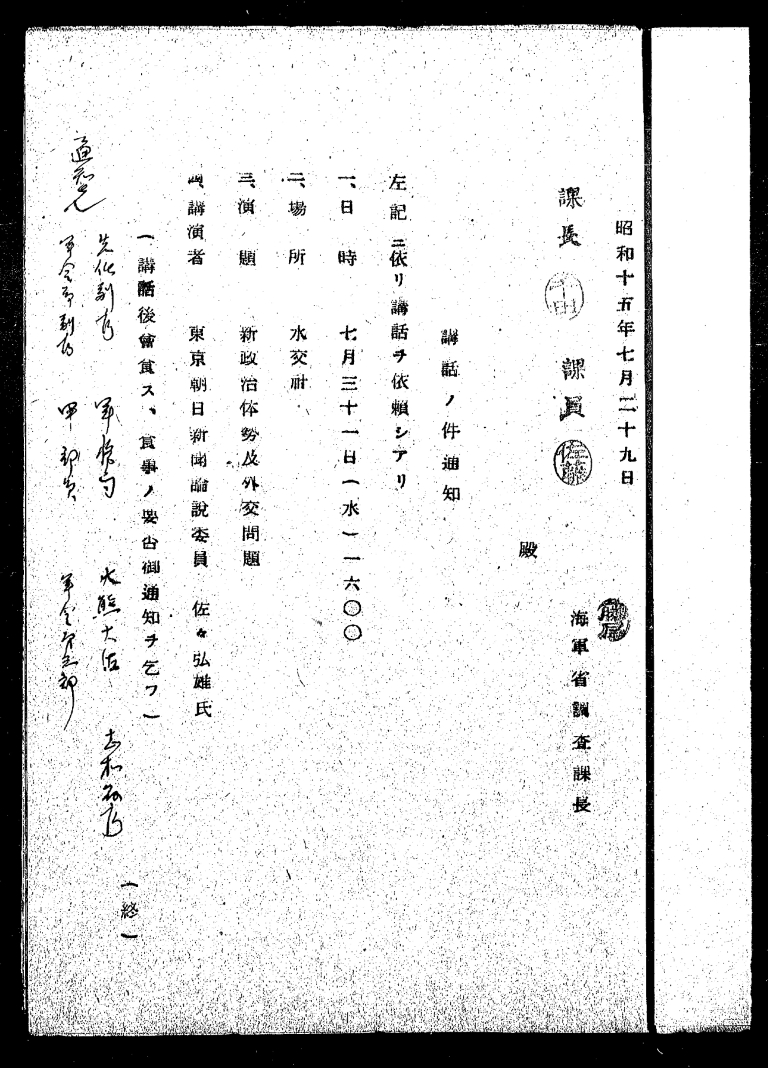 昭和十五年七月二十九日
海軍省調査課長
課長 課員 佐藤
殿
講話ノ件通知
左記ニ依リ講話ヲ依頼シアリ
一、日時 七月三十一日(水)一六〇〇
二、場所 水交社
三、演題 新政治体勢及外交問題
四、講演者 東京朝日新聞論説委員 佐々弘雄氏
(講話後會食ス、食事ノ要否御通知ヲ乞フ)
(終)
大熊大佐